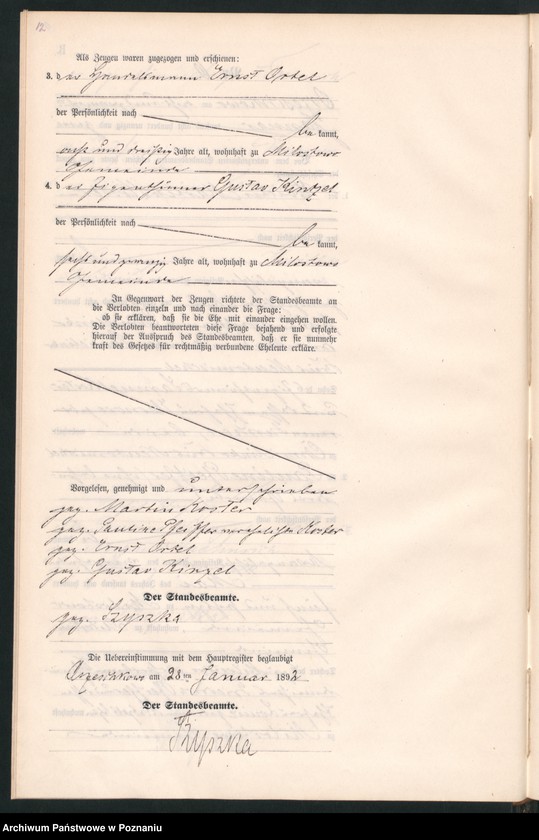 12
Als Zeugen waren zugezogen und erschienen:
3. der Handelsmann Ernst Ortel
der Persönlichkeit nach
be kannt,
und dreißig Jahre alt, wohnhaft zu Milostowo
Gemeinde
4. der Eigenthümer Gustav Kintzel
der Persönlichkeit nach
be kannt,
sechs und zwanzig Jahre alt, wohnhaft zu Milostowo
Gemeinde
In Gegenwart der Zeugen richtete der Standesbeamte an
die Verlobten einzeln und nach einander die Frage:
ob sie erklären, daß sie die Ehe mit einander eingehen wollen.
Die Verlobten beantworteten diese Frage bejahend und erfolgte
hierauf der Ausspruch des Standesbeamten, daß er sie nunmehr
kraft des Gesetzes für rechtmäßig verbundene Eheleute erkläre.
Vorgelesen, genehmigt und unterschrieben
gez. Martin Koster
gez. Pauline Pfeiffer verehelichte Koster
gez. Ernst Ortel
gez. Gustav Kinzel
Der Standesbeamte.
gez. Ryszka
Die Uebereinstimmung mit dem Hauptregister beglaubigt
am 23ten Januar 1892
Der Standesbeamte.
Ryszka
Archiwum Państwowe w Poznaniu